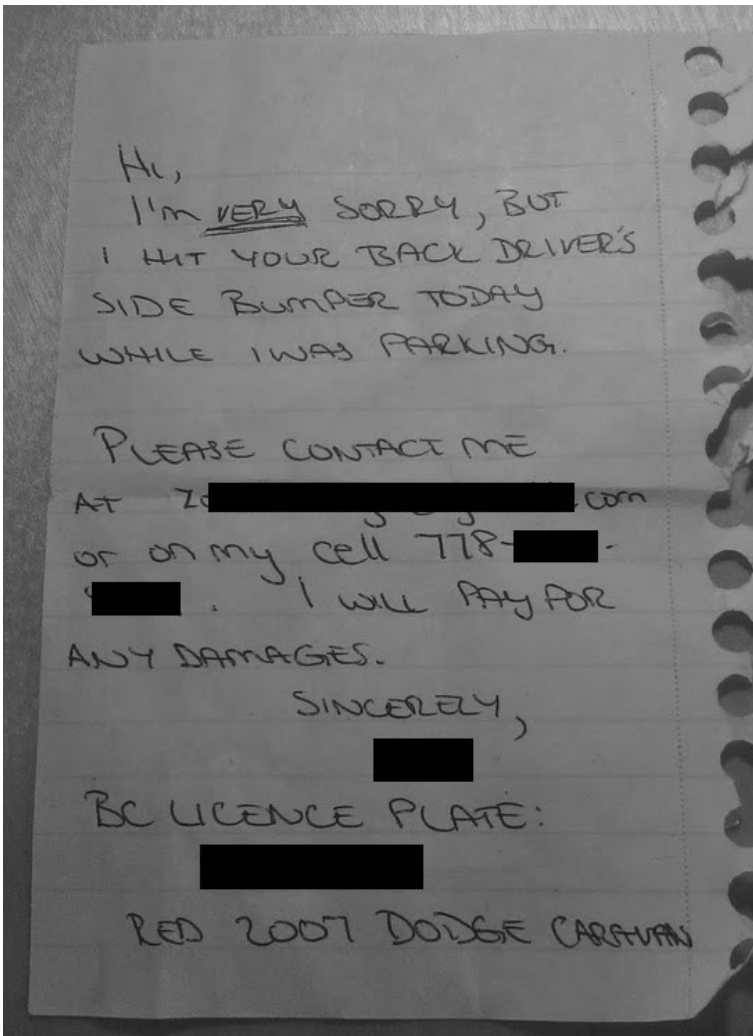 Hi,
I'm VERY SORRY, BUT
I HIT YOUR BACK DRIVER'S
SIDE BUMPER TODAY
WHILE I WAS PARKING.
PLEASE CONTACT ME
AT zo .com
or on my cell 778- -
. I WILL PAY FOR
ANY DAMAGES.
SINCERELY,
BC LICENCE PLATE:
RED 2007 DODGE CARAVAN